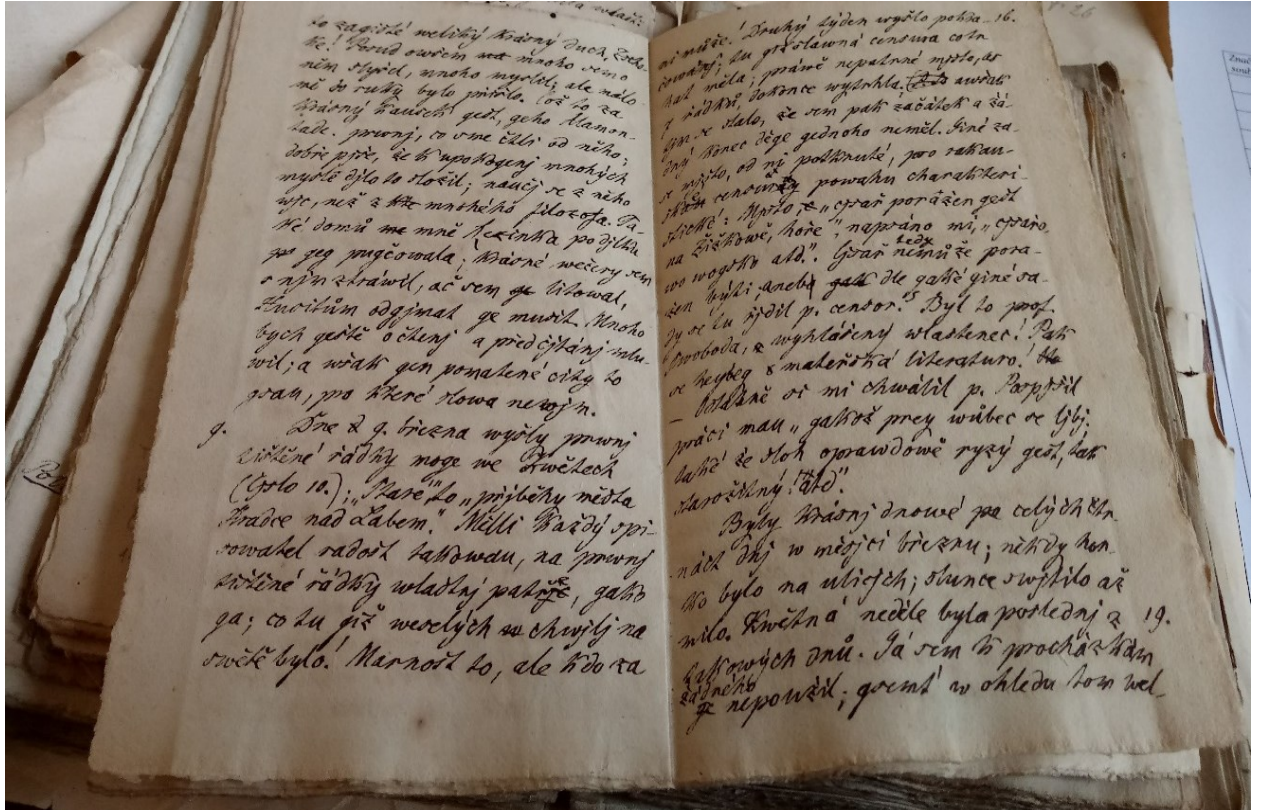 to zagisté weliký krásný duch, Zscho-
ke! Posud owšem mnoho sem o
něm slyšel, mnoho myslel; ale málo
mě do ruky bylo přišlo. Což to za
krásný kausek gest, geho Alamon-
tade! prwnj, co sme čtli od něho;
dobře pjše, že k upokogenj mnohých
mysli djlo to složil; naučj se z něho
wjc, než z mnohého filozofa. Ta-
ké domů mně Rezinka po djlku
geg pugčowala; krásné wečery sem
s njm ztráwil, ač sem litowal,
odgjmat ge musit. Mnoho
bych geště o čtenj a předčjtánj mlu-
wil; a wšak gen pomatené city to
gsau, pro které slowa newjm.
9. Dne 9. března wyšly prwnj
tištěné řádky moge we Kwětech
(čjslo 10.); „Staré" to „přjběhy města
Hradce nad Labem." Měl-li každý spi-
sowatel radost takowau, na prwnj
tištěné řádky wlastnj patře, gako
ga; co tu giž weselých chwjlj na
swětě bylo! Marnost to, ale kdo za
ni může! Druhý týden wyšlo pokra- 16.
čowánj; tu giž slawná censura co tr-
hat měla; práwě nepatrné mjsto, as
7 řádků, dokonce wytrhla; awšak
tjm se stalo, že sem pak začátek a žá-
dný konec děge gednoho neměl. Giné za-
se mjsto, od nj potknuté, pro rakau-
skau censury powahu charakteri-
stické: Mjsto, „cjsař poražen gest
na Žižkowě hoře", napsáno mi, „cjsařo-
wo wogsko atd." Cjsař tedy nemůže pora-
žen býti, aneb dle gaké giné sa-
dy se tu řjdil p. censor? Byl to prof.
Swoboda, wyhlášený wlastenec! Pak
se heybeg mateřská literaturo!
– Ostatně si mi chwálil p. Pospjšil
práci mau, gakož prey wůbec se ljbj;
také že sloh oprawdowě ryzý gest, tak
starožitný! atd".
Byly krásnj dnowé po celých čtr-
náct dnj w měsjci březnu; někdy hor-
ko bylo na ulicjch; slunce swjtilo až
milo. Kwětná neděle byla poslednj z 19.
takowých dnů. Já sem k procházkám
žádného nepoužil; gsemť w ohledu tom wel-